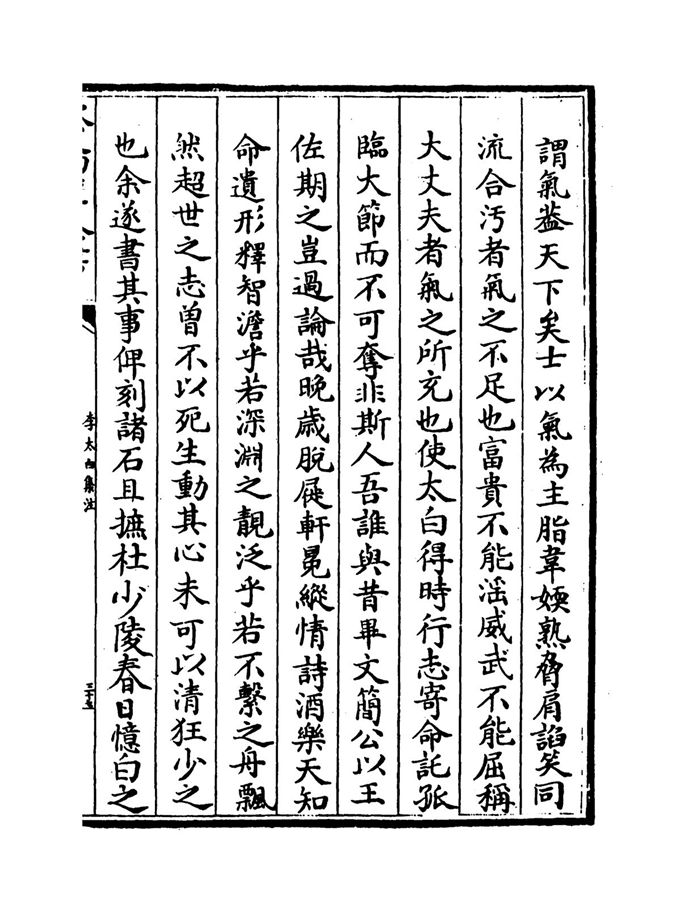 謂氣葢天下矣士以氣為主脂韋媆熟脅肩謟笑同
流合汚者氣之不足也富貴不能滛威武不能屈稱
大丈夫者氣之所充也使太白得時行志寄命託孤
臨大節而不可奪非斯人吾誰與昔畢文簡公以王
佐期之豈過論哉晚歲脫屣軒冕縱情詩酒樂天知
命遺形釋智澹乎若深淵之靚泛乎若不繫之舟飄
然超世之志曽不以死生動其心未可以清狂少之
也余遂書其事俾刻諸石且摭杜少陵春日憶白之
李太白集注
三十五